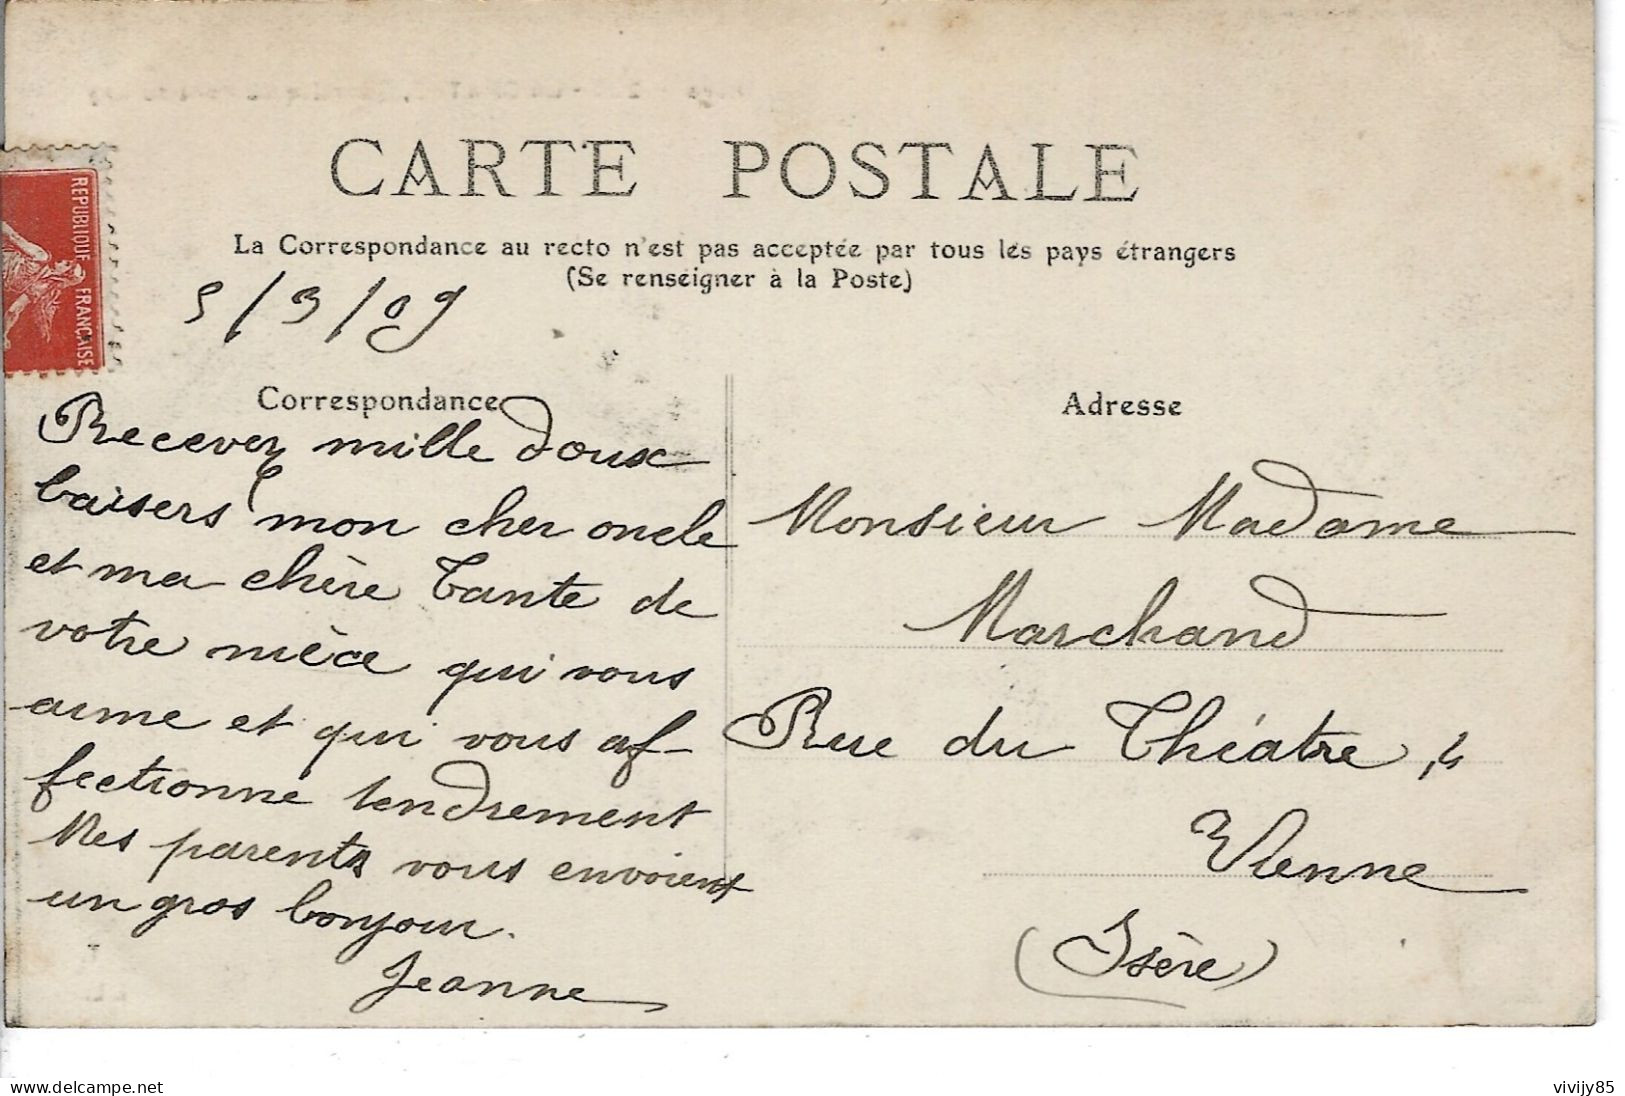 CARTE POSTALE
La Correspondance au recto n'est pas acceptée par tous les pays étrangers
(Se renseigner à la Poste)
REPUBLIQUE FRANÇAISE
5/3/09
Correspondance
Recevez mille doux
baisers mon cher oncle
et ma chère Tante de
votre nièce qui vous
aime et qui vous af-
fectionne tendrement
Mes parents vous envoient
un gros bonjour.
Jeanne
Adresse
Monsieur Madame
Marchand
Rue du Théâtre, 4
Vienne
(Isère)
www.delcampe.net
vivijy85